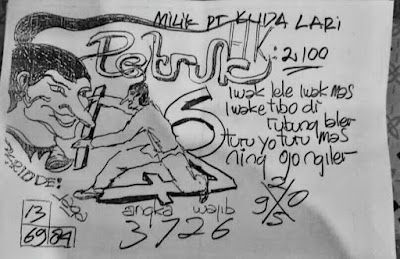 MILIK PT KUDA LARI
Petruk : 2100
Iwak lele iwak mas
Iwake tibo di
rubung laler
turu yo turu mas
ning ojo ngiler
PERIODE:
6
angka wajib
3726
13
69 84
9 2 0 5